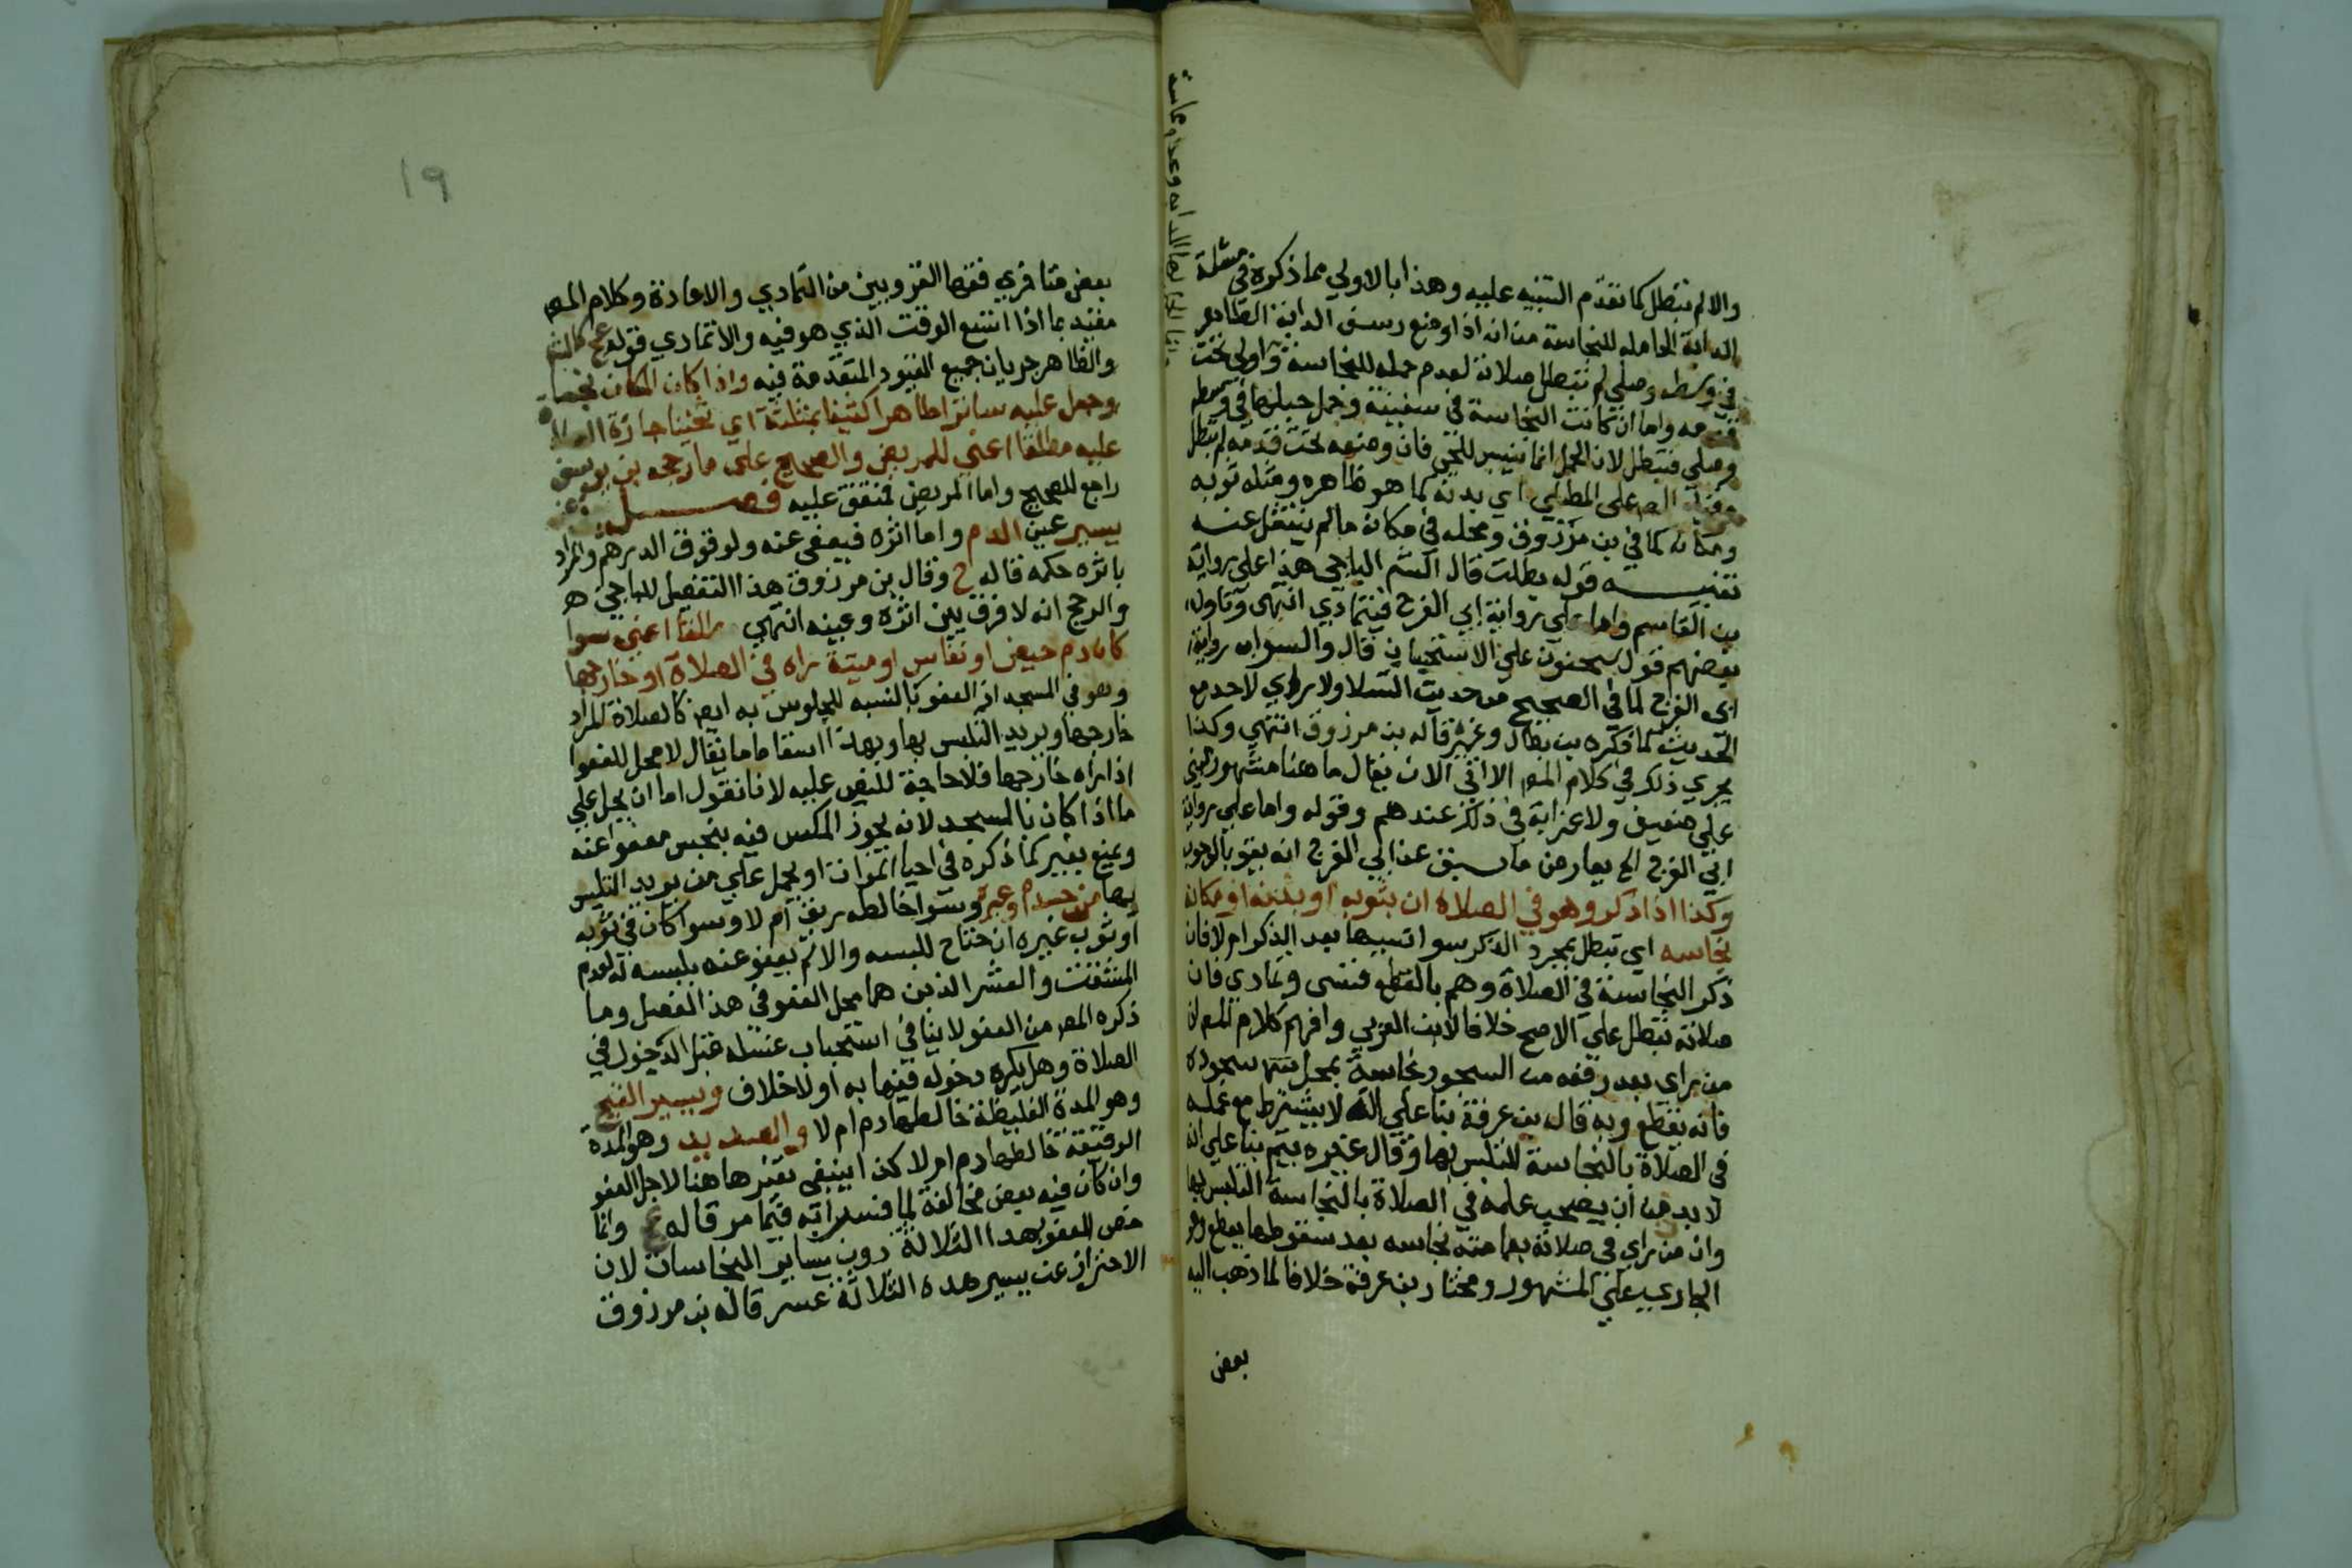 والا لم تبطل كما تقدم التنبيه عليه وهذا بالاولي مما ذكروه في مسئلة
الدابة الحامله للنجاسة من انه اذا وضع رسن الدابة الطاهر
في وسطه وصلي لم تبطل صلاته لعدم حمله للنجاسة واولي تحت
قدمه واما ان كانت النجاسة في سفينة وحمل حبلها في وسطه
وصلي فتبطل لان الحمل انما ينسب للنجس فان وضعه تحت قدمه لم تبطل
المص علي المصلي اي بدنه كما هو ظاهره ومثله ثوبه
ومكانه كما في بن مرزوق ومحله في مكانه ما لم ينتقل عنه
تنبيه قوله بطلت قال الشم الباجي هذا علي رواية
بن القاسم واما علي رواية ابي الفرج فيتمادي انتهي وتاول
بعضهم قول سحنون علي الاستحباب قال والصواب رواية
ابي الفرج لما في الصحيح من حديث السلا ولا براي لاحد مع
الحديث كما ذكره بن بطال وغيره قاله بن مرزوق انتهي وكذا
يجري ذلك في كلام المص الاتي الا ان يقال ما هنا مشهور مبني
علي ضعيف ولا غرابة في ذلك عندهم وقوله واما علي رواية
ابي الفرج الخ يعارض ما سبق عن ابي الفرج انه يقول بالوجوب
وكذا اذا ذكر وهو في الصلاة ان بثوبه او بدنه او مكانه
نجاسه اي تبطل بمجرد الذكر سوا نسيها بعد الذكر ام لا فان
ذكر النجاسة في الصلاة وهم بالقطع فنسي وتمادي فان
صلاته تبطل علي الاصح خلافا لابن العربي وافهم كلام المص ان
من راي بعد رفعه من السجود نجاسة بمحل سجوده
فانه يقطع وبه قال بن عرفة بنا علي انه لا يشترط مع علمه
في الصلاة بالنجاسة التلبس بها وقال غيره يتم بنا علي انه
لا بد من ان يصحب علمه في الصلاة بالنجاسة التلبس بها
وان من راي في صلاته بعمامته نجاسه بعد سقوطها يقطع وهو
الجاري علي المشهور ومختار بن عرفة خلافا لما ذهب اليه
بعض
١٩
بعض متاخري فقها القرويين من التمادي والاعادة وكلام المص
مقيد بما اذا اتسع الوقت الذي هو فيه والا تمادي قوله
والظاهر جريان جميع القيود المتقدمة فيه واذا كان المكان نجسا
وجعل عليه ساترا طاهرا كثيفا بمثلثة اي ثخينا جازة الصلاة
عليه مطلقا اعني للمريض والصحيح علي ما رجحه بن يونس
راجع للصحيح واما المريض فمتفق عليه فصل
يسير عين الدم واما اثره فيعفي عنه ولو فوق الدرهم والمراد
باثره حكمه قاله ح وقال بن مرزوق هذا التفصيل للباجي
والرجح انه لا فرق بين اثره وعينه انتهي مطلقا اعني سوا
كان دم حيض او نفاس او ميتة راه في الصلاة او خارجها
وهو في المسجد اذ العفو بالنسبه للجلوس به ايضا كالصلاة المراد
خارجها ويريد التلبس بها وبهذا اسقاما ما يقال لا محل للعفوا
اذا راه خارجها فلا حاجة للنص عليه لانا نقول اما ان يحمل علي
ما اذا كان بالمسجد لانه يجوز المكس فيه بنجس معفوا عنه
ويمنع بغير كما ذكره في احيا الموات او يحمل علي من يريد التلبس
بها من جسده او غيره وسوا خالطه ريق ام لا وسوا كان في ثوبه
او ثوب غيره ان حتاج للبسه والا لم يعفو عنه بلبسه له لعدم
المشقت والعسر الذين هما محل العفو في هذا الفصل وما
ذكره المص من العفو لا ينافي استحباب غسله قبل الدخول في
الصلاة وهل يكره دخوله فيها به او لا خلاف ويسير القيح
وهو المدة الغليظة خالطها دم ام لا والصديد وهو المدة
الرقيقة خالطها دم ام لا كذا ينبغي تفسيرها هنا لاجل العفو
وان كان فيه بعض مخالفة لما فسر به فيما مر قاله وانما
خص العفو بهذا الثلاثة دون ساير النجاسات لان
الاحتراز عن يسير هذه الثلاثة عسر قاله بن مرزوق